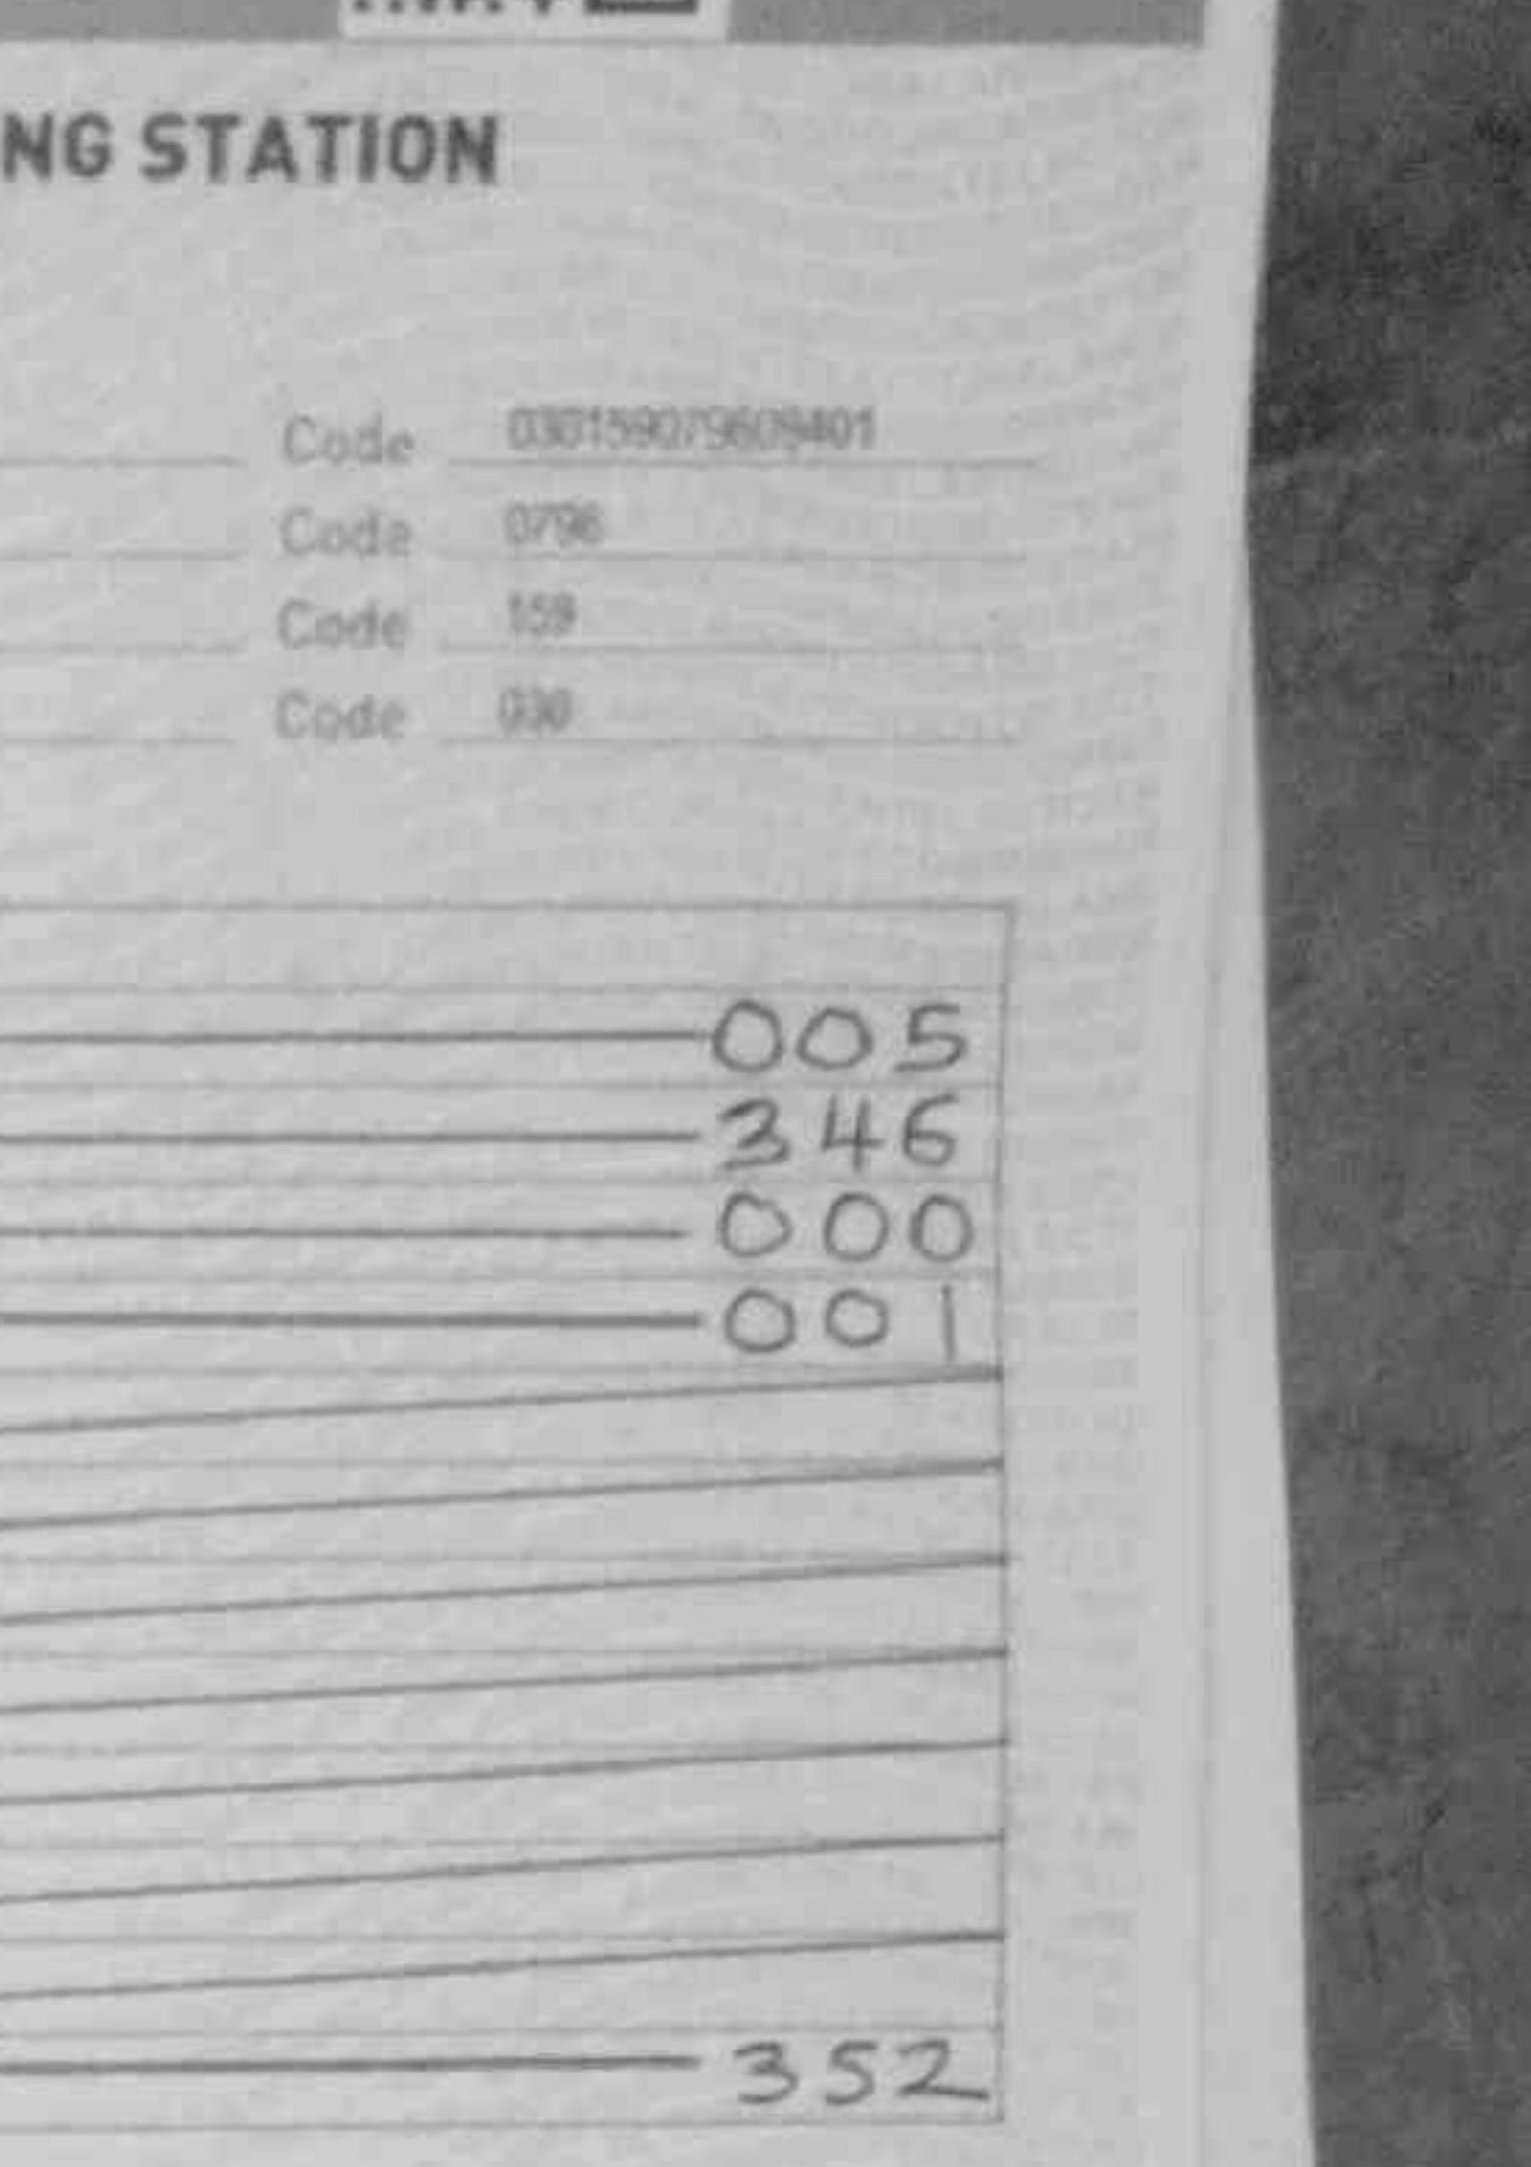 NG STATION
Code 030159079609401
Code 0796
Code 159
Code 030
005
346
000
001
352